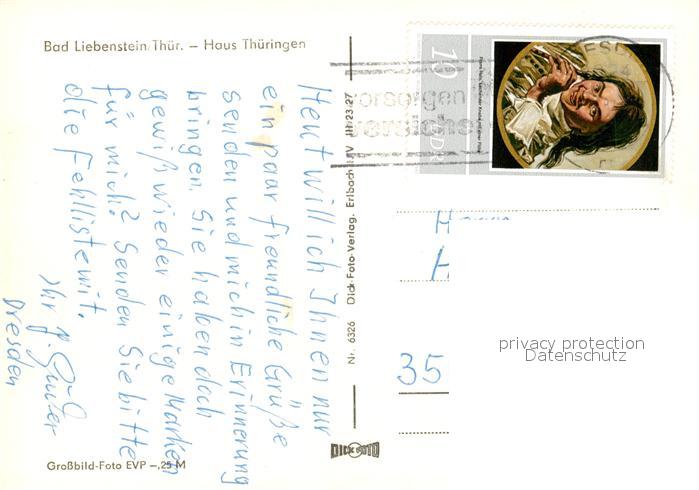 Bad Liebenstein/Thür. – Haus Thüringen
Heut will ich Ihnen nur
ein paar freundliche Grüße
senden und mich in Erinnerung
bringen. Sie haben doch
gewiß wieder einige Marken
für mich? Senden Sie bitte
die Fehlliste mit.
Ihr
Dresden
Großbild-Foto EVP –,25 M
Nr. 6326 Dick-Foto-Verlag. Erlbach i. V III/23/27
DICK FOTO
10
DDR
vorsorgen
H
H
35
privacy protection
Datenschutz